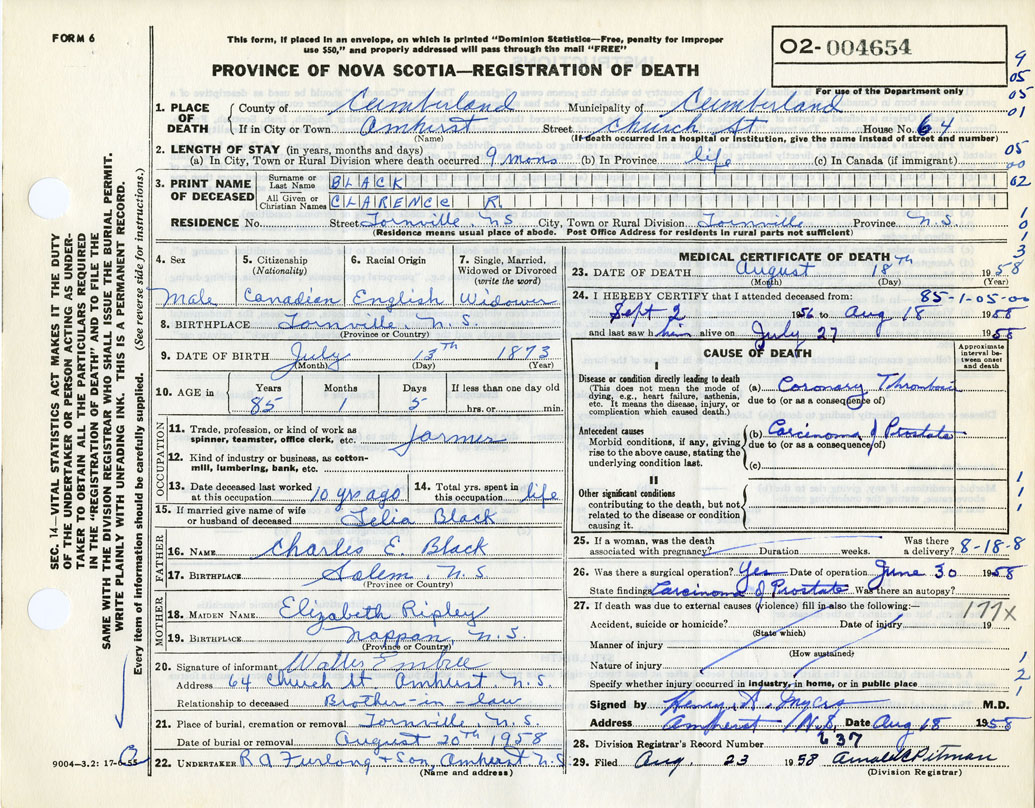 FORM 6
This form, if placed in an envelope, on which is printed "Dominion Statistics—Free, penalty for improper
use $50," and properly addressed will pass through the mail "FREE"
O2-004654
For use of the Department only
PROVINCE OF NOVA SCOTIA—REGISTRATION OF DEATH
9
05
05
01
05
00
62
1
0
1
3
1. PLACE OF DEATH
County of Cumberland Municipality of Cumberland
If in City or Town Amherst Street Church St House No. 64
(Name) (If death occurred in a hospital or Institution, give the name instead of street and number)
2. LENGTH OF STAY (in years, months and days)
(a) In City, Town or Rural Division where death occurred 9 mons (b) In Province life (c) In Canada (if immigrant)
3. PRINT NAME OF DECEASED
Surname or Last Name BLACK
All Given or Christian Names CLARENCE R.
RESIDENCE No. Street Tornville N.S City, Town or Rural Division Tornville Province N.S.
(Residence means usual place of abode. Post Office Address for residents in rural parts not sufficient)
4. Sex 5. Citizenship (Nationality) 6. Racial Origin 7. Single, Married, Widowed or Divorced (write the word)
Male Canadian English Widower
8. BIRTHPLACE Tornville, N.S.
(Province or Country)
9. DATE OF BIRTH July 13th 1873
(Month) (Day) (Year)
10. AGE in Years Months Days If less than one day old
85 1 5 hrs. or min.
OCCUPATION
11. Trade, profession, or kind of work as
spinner, teamster, office clerk, etc. farmer
12. Kind of industry or business, as cotton-
mill, lumbering, bank, etc.
13. Date deceased last worked at this occupation 10 yrs ago 14. Total yrs. spent in this occupation life
15. If married give name of wife
or husband of deceased Lelia Black
FATHER
16. NAME Charles E. Black
17. BIRTHPLACE Salem, N.S
(Province or Country)
MOTHER
18. MAIDEN NAME Elizabeth Ripley
19. BIRTHPLACE Nappan, N.S.
(Province or Country)
20. Signature of informant Walter Embree
Address 64 Church St. Amherst, N.S.
Relationship to deceased Brother-in-law
21. Place of burial, cremation or removal Tornville N.S.
Date of burial or removal August 20th 1958
22. UNDERTAKER R A Furlong + Son, Amherst N.S
(Name and address)
MEDICAL CERTIFICATE OF DEATH
23. DATE OF DEATH August 18th 1958
(Month) (Day) (Year)
24. I HEREBY CERTIFY that I attended deceased from: 85-1-05-00
Sept 2 1956 to Aug 18 1958
and last saw him alive on July 27 1958
CAUSE OF DEATH
Approximate interval between onset and death
I
Disease or condition directly leading to death
(This does not mean the mode of
dying, e.g., heart failure, asthenia,
etc. It means the disease, injury, or
complication which caused death.)
(a) Coronary Thrombosis
due to (or as a consequence of)
Antecedent causes
Morbid conditions, if any, giving
rise to the above cause, stating the
underlying condition last.
(b) Carcinoma of Prostate
due to (or as a consequence of)
(c)
II
Other significant conditions
contributing to the death, but not
related to the disease or condition
causing it.
1
1
1
25. If a woman, was the death
associated with pregnancy? Duration weeks. Was there a delivery? 8-18-8
26. Was there a surgical operation? Yes Date of operation June 30 1958
State findings Carcinoma of Prostate Was there an autopsy?
27. If death was due to external causes (violence) fill in also the following:— 177X
Accident, suicide or homicide? Date of injury 19
(State which)
Manner of injury
(How sustained)
Nature of injury
Specify whether injury occurred in industry, in home, or in public place
1
2
1
Signed by Henry A. Myers M.D.
Address Amherst N.S. Date Aug 18 1958
28. Division Registrar's Record Number 237
29. Filed Aug. 23 1958 Arnold C Pitman
(Division Registrar)
SEC. 14—VITAL STATISTICS ACT MAKES IT THE DUTY
OF THE UNDERTAKER OR PERSON ACTING AS UNDER-
TAKER TO OBTAIN ALL THE PARTICULARS REQUIRED
IN THE "REGISTRATION OF DEATH" AND TO FILE THE
SAME WITH THE DIVISION REGISTRAR WHO SHALL ISSUE THE BURIAL PERMIT.
WRITE PLAINLY WITH UNFADING INK. THIS IS A PERMANENT RECORD.
Every item of information should be carefully supplied. (See reverse side for instructions.)
9004-3.2: 17-6-55